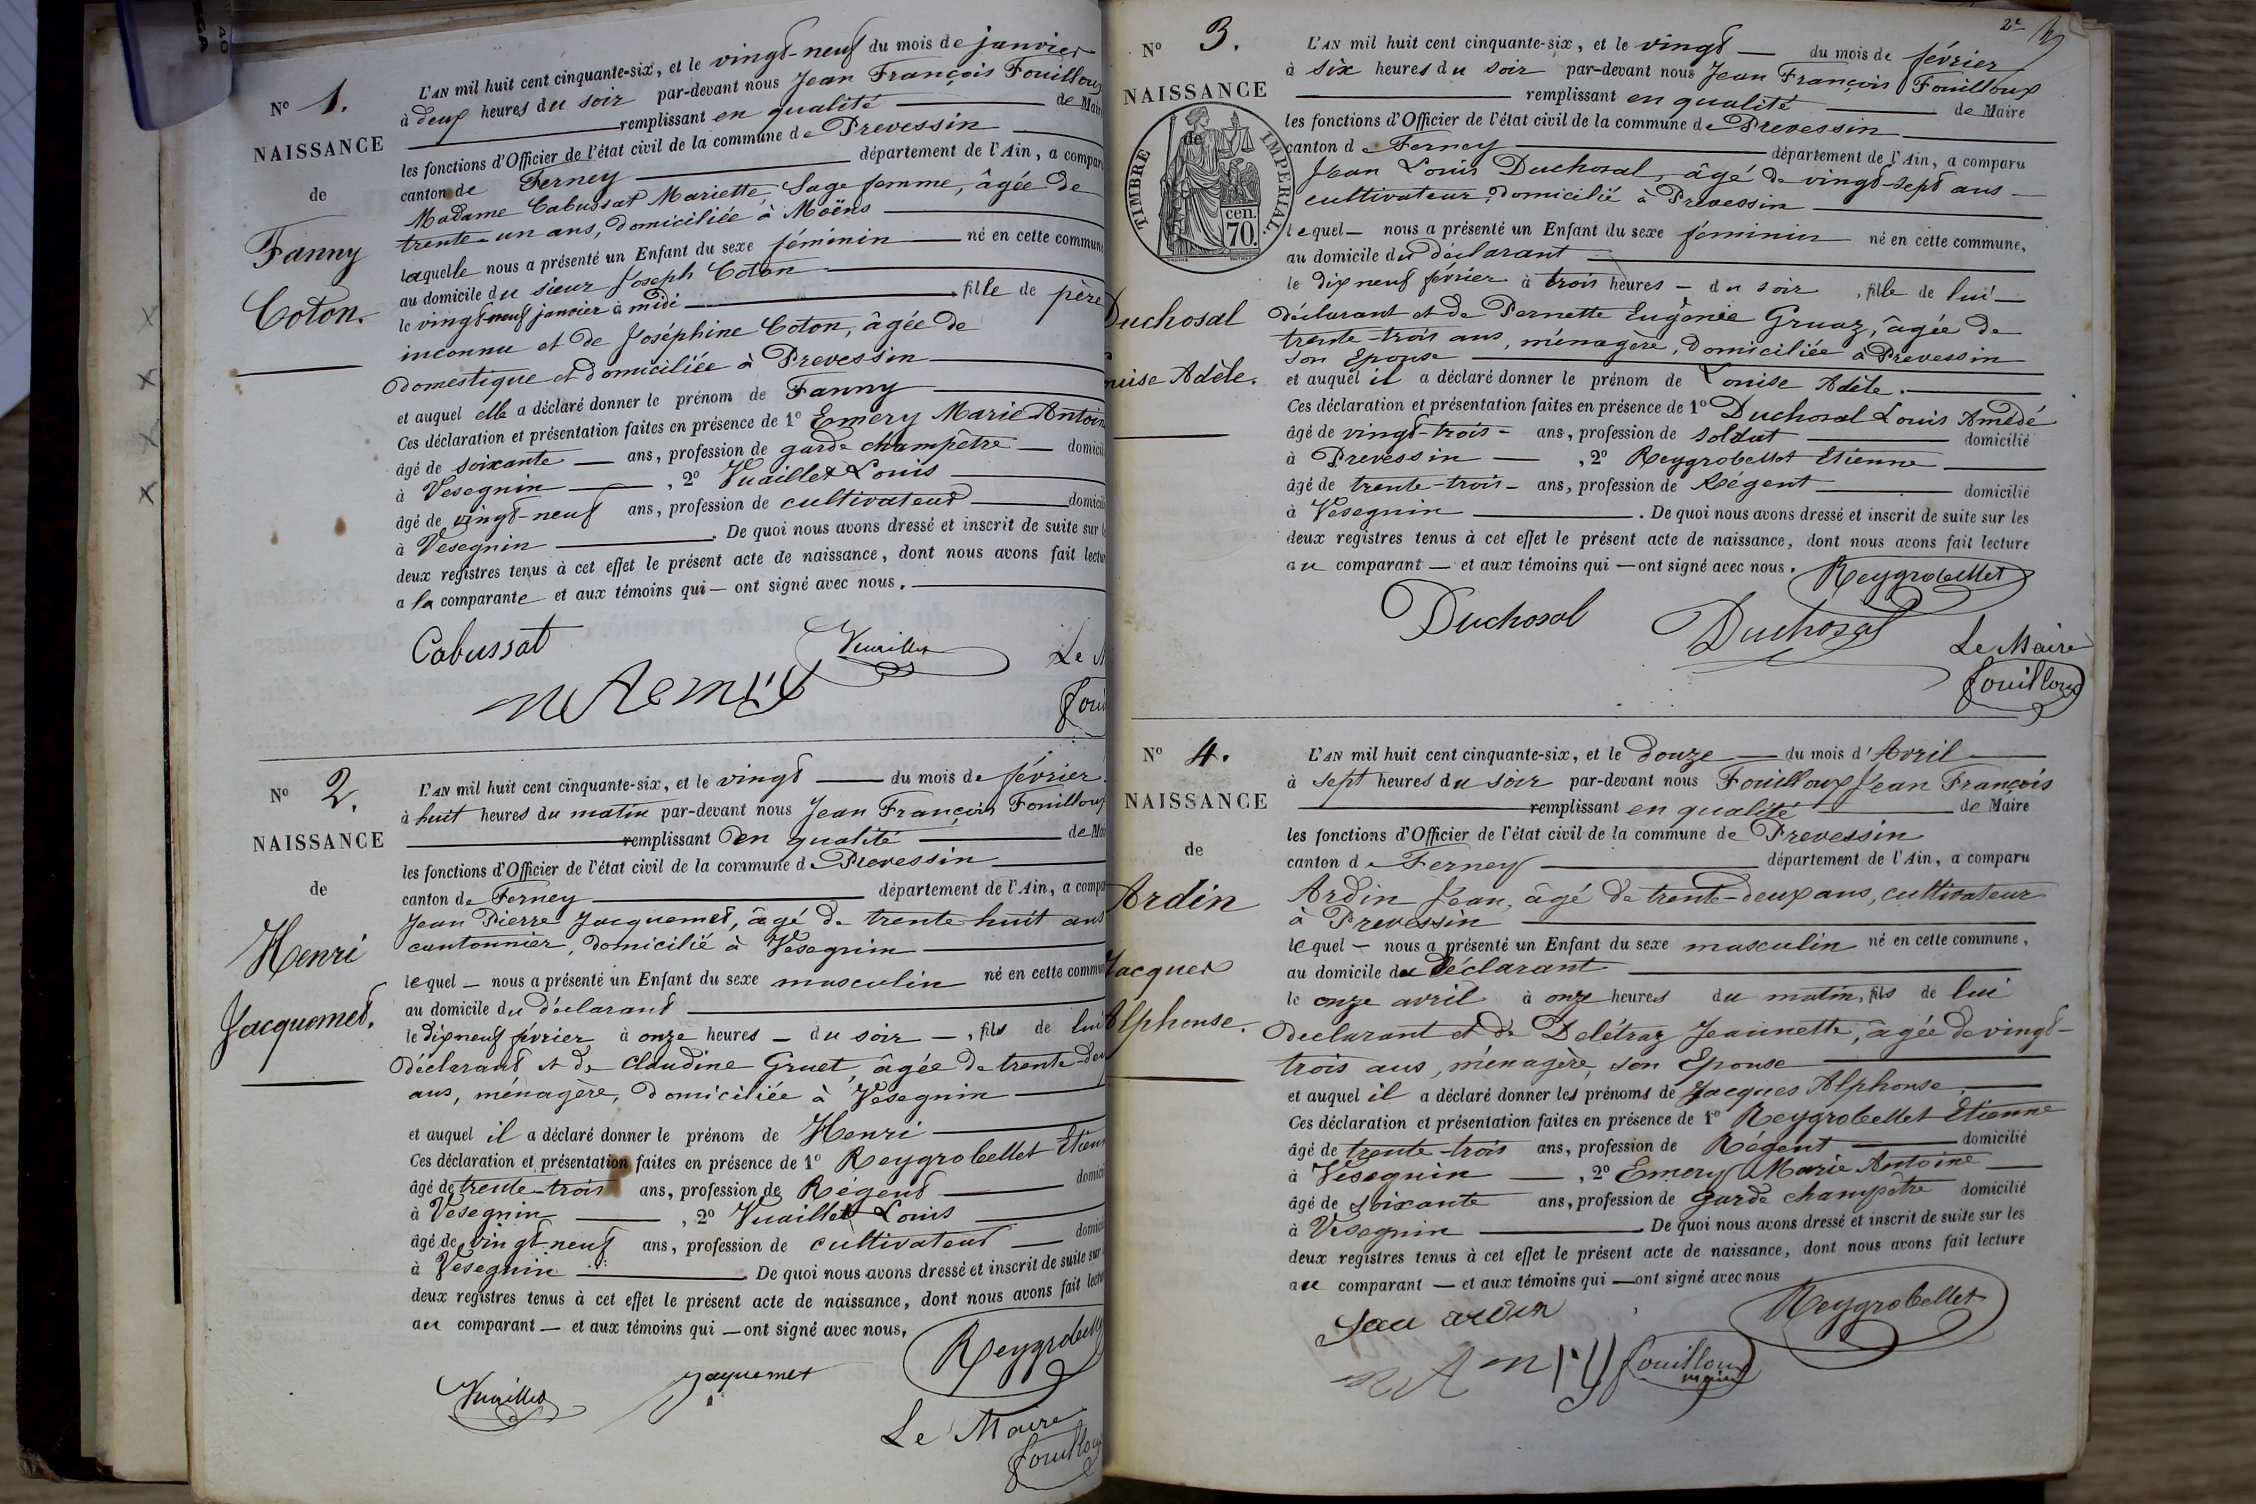 N° 1.
NAISSANCE
de
Fanny
Coton.
L'AN mil huit cent cinquante-six, et le vingt-neuf du mois de janvier
à deux heures du soir par-devant nous Jean François Fouilloux
remplissant en qualité de Maire
les fonctions d'Officier de l'état civil de la commune de Prevessin
canton de Ferney département de l'Ain, a comparu
Madame Cabussat Mariette, Sage femme, âgée de
trente-un ans, domiciliée à Moëns
laquelle nous a présenté un Enfant du sexe féminin né en cette commune
au domicile du sieur Joseph Coton
le vingt neuf janvier à midi fille de père
inconnu et de Joséphine Coton, âgée de
domestique et domiciliée à Prevessin
et auquel elle a déclaré donner le prénom de Fanny
Ces déclaration et présentation faites en présence de 1° Emery Marie Antoin
âgé de soixante ans, profession de garde champêtre domicili
à Vesegnin , 2° Vuaillet Louis
âgé de vingt-neuf ans, profession de cultivateur domicili
à Vesegnin . De quoi nous avons dressé et inscrit de suite sur l
deux registres tenus à cet effet le présent acte de naissance, dont nous avons fait lectur
a la comparante et aux témoins qui — ont signé avec nous.
Cabussat
Vuaillet
Le M
Foui
N° 2.
NAISSANCE
de
Henri
Jacquemet.
L'AN mil huit cent cinquante-six, et le vingt du mois de février
à huit heures du matin par-devant nous Jean François Fouilloux
remplissant en qualité de Mai
les fonctions d'Officier de l'état civil de la commune de Prevessin
canton de Ferney département de l'Ain, a compa
Jean Pierre Jacquemet, âgé de trente huit ans
cantonnier, domicilié à Vesegnin
lequel — nous a présenté un Enfant du sexe masculin né en cette commun
au domicile du déclarant
le dix neuf février à onze heures — du soir —, fils de lui
déclarant et de Claudine Gruet, âgée de trente-deu
ans, ménagère, domiciliée à Vesegnin
et auquel il a déclaré donner le prénom de Henri
Ces déclaration et présentation faites en présence de 1° Reygrobellet Etien
âgé de trente-trois ans, profession de Régent domici
à Vesegnin , 2° Vuaillet Louis
âgé de vingt-neuf ans, profession de cultivateur domici
à Vesegnin . De quoi nous avons dressé et inscrit de suite sur
deux registres tenus à cet effet le présent acte de naissance, dont nous avons fait lectu
au comparant — et aux témoins qui — ont signé avec nous.
Reygrobell
Vuaillet
Jaquemet
Le Maire
Fouillou
2e
N° 3.
NAISSANCE
de
TIMBRE IMPERIAL.
cen.
70.
Duchosal
ouise Adèle.
L'AN mil huit cent cinquante-six, et le vingt — du mois de février
à six heures du soir par-devant nous Jean François Fouilloux
remplissant en qualité de Maire
les fonctions d'Officier de l'état civil de la commune de Prevessin
canton de Ferney département de l'Ain, a comparu
Jean Louis Duchosal, âgé de vingt-sept ans —
cultivateur, domicilié à Prevessin
lequel — nous a présenté un Enfant du sexe féminin né en cette commune,
au domicile du déclarant
le dix neuf février à trois heures — du soir , fille de lui —
déclarant et de Pernette Eugènie Gruaz, âgée de
trente-trois ans, ménagère, domiciliée à Prevessin
son Epouse
et auquel il a déclaré donner le prénom de Louise Adèle.
Ces déclaration et présentation faites en présence de 1° Duchosal Louis Amédé
âgé de vingt-trois — ans, profession de soldat domicilié
à Prevessin — , 2° Reygrobellet Etienne
âgé de trente-trois — ans, profession de Régent domicilié
à Vesegnin . De quoi nous avons dressé et inscrit de suite sur les
deux registres tenus à cet effet le présent acte de naissance, dont nous avons fait lecture
au comparant — et aux témoins qui — ont signé avec nous.
Reygrobellet
Duchosal
Duchosal
Le Maire
Fouilloux
N° 4.
NAISSANCE
de
Ardin
Jacques
Alphonse.
L'AN mil huit cent cinquante-six, et le douze — du mois d'Avril
à sept heures du soir par-devant nous Fouilloux Jean François
remplissant en qualité de Maire
les fonctions d'Officier de l'état civil de la commune de Prevessin
canton de Ferney département de l'Ain, a comparu
Ardin Jean, âgé de trente-deux ans, cultivateur
à Prevessin
lequel — nous a présenté un Enfant du sexe masculin né en cette commune,
au domicile du déclarant
le onze avril à onze heures du matin, fils de lui
declarant et de Delétraz Jeannette, âgée de vingt-
trois ans, ménagère, son Epouse
et auquel il a déclaré donner les prénoms de Jacques Alphonse.
Ces déclaration et présentation faites en présence de 1° Reygrobellet Etienne
âgé de trente-trois ans, profession de Régent domicilié
à Vesegnin — , 2° Emery Marie Antoine
âgé de soixante ans, profession de garde champêtre domicilié
à Vesegnin . De quoi nous avons dressé et inscrit de suite sur les
deux registres tenus à cet effet le présent acte de naissance, dont nous avons fait lecture
au comparant — et aux témoins qui — ont signé avec nous
Jean ardin
Reygrobellet
Fouilloux
maire